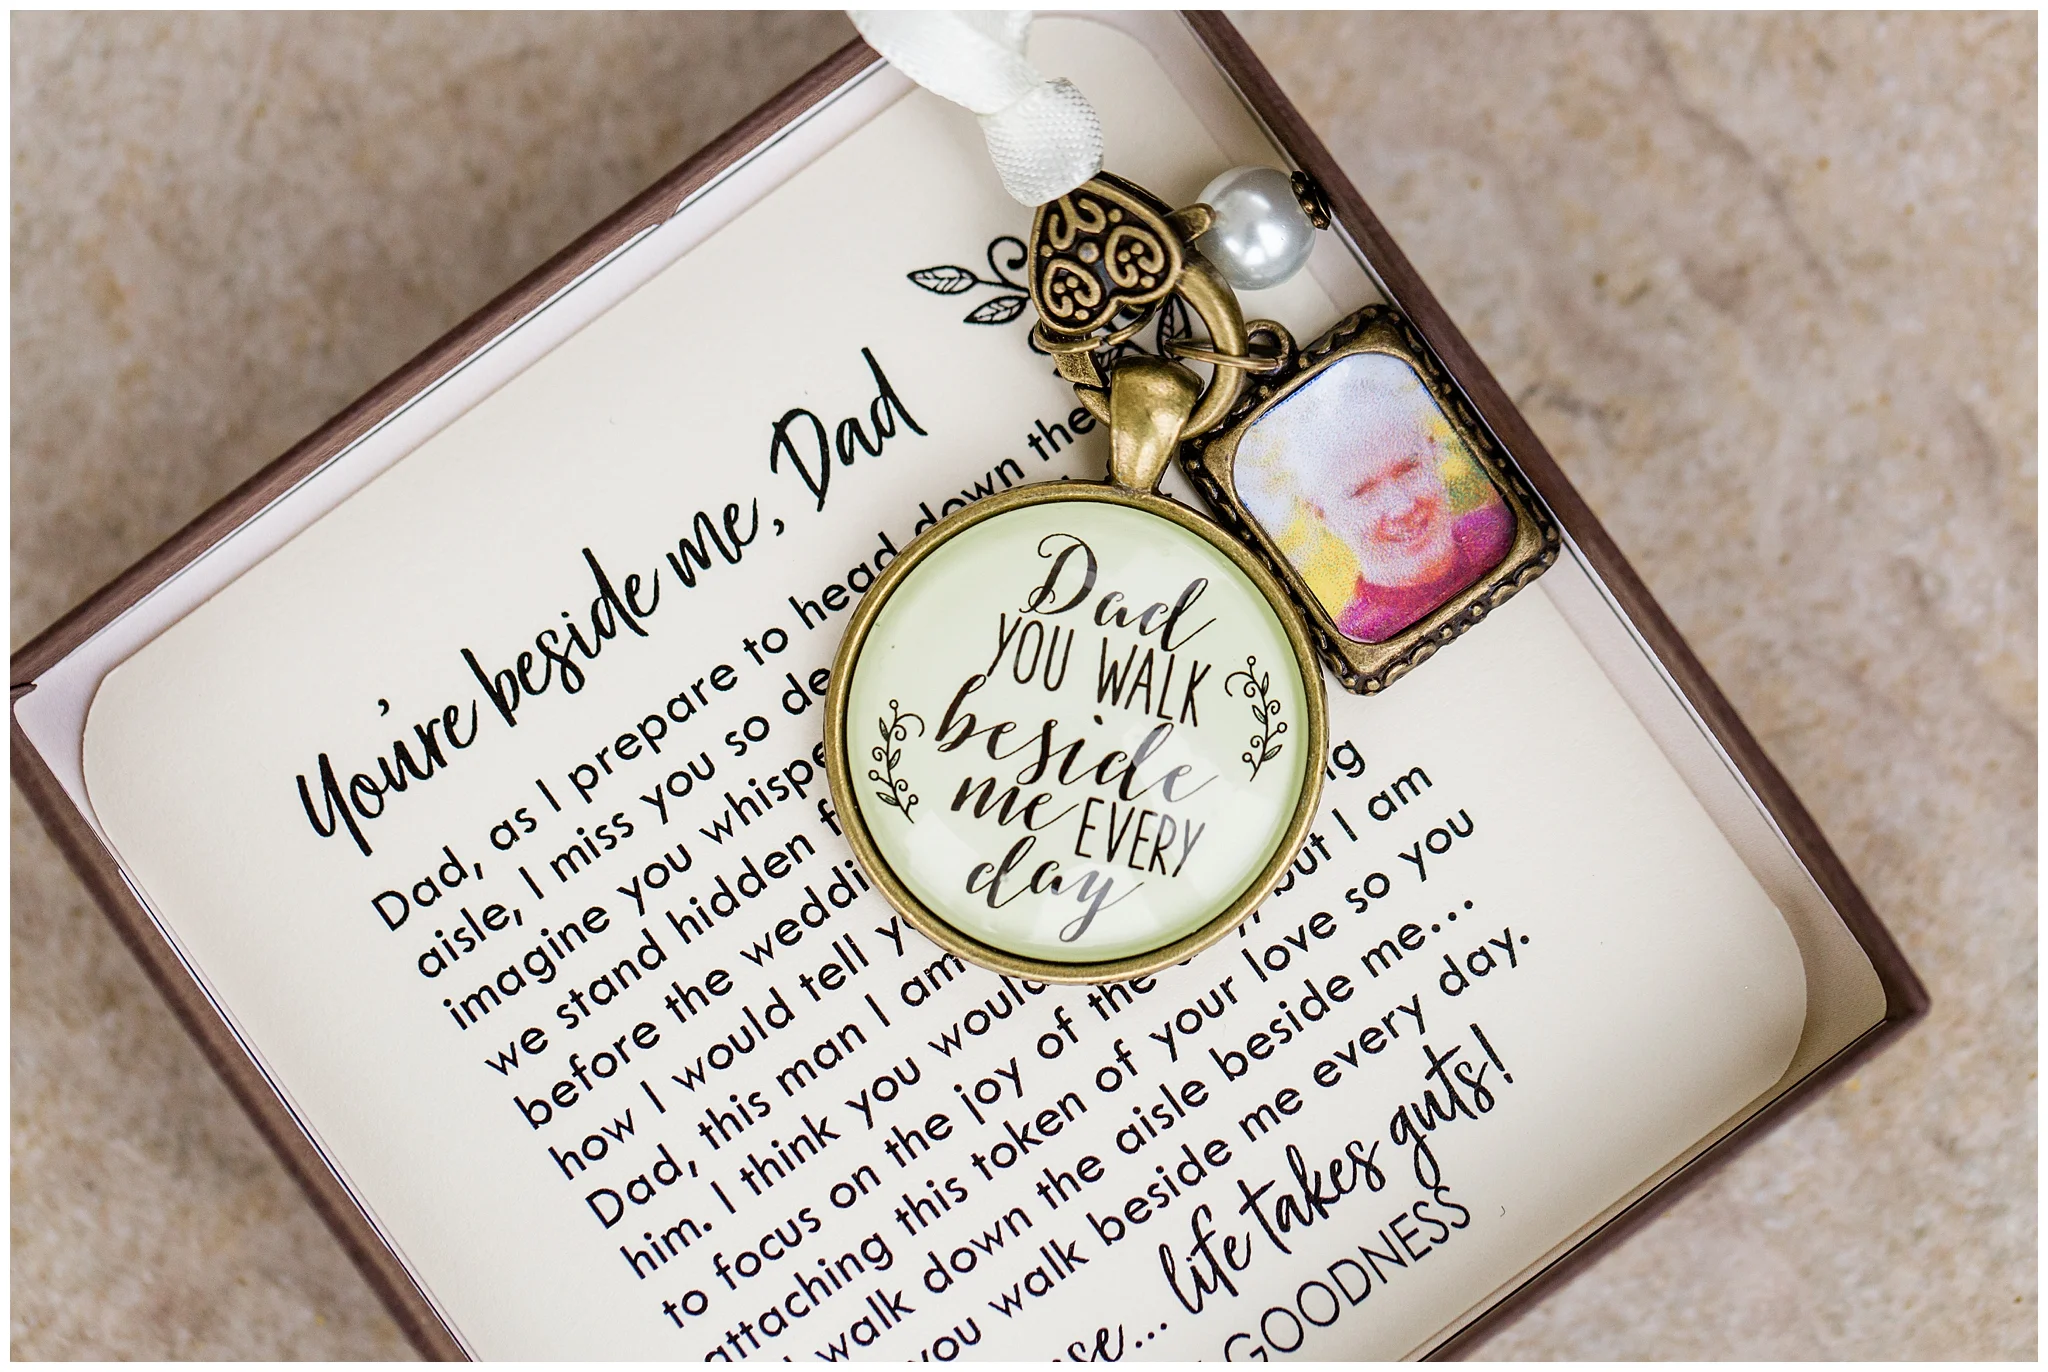 You're beside me, Dad
Dad, as I prepare to head down the
aisle, I miss you so
imagine you
we stand hidden
before the
how I would tell
Dad, this man I am
him. I think you would
to focus on the joy of the but I am
attaching this token of your love so you
walk down the aisle beside me...
you walk beside me every day.
life takes guts!
GOODNESS
Dad
YOU WALK
beside
me EVERY
day